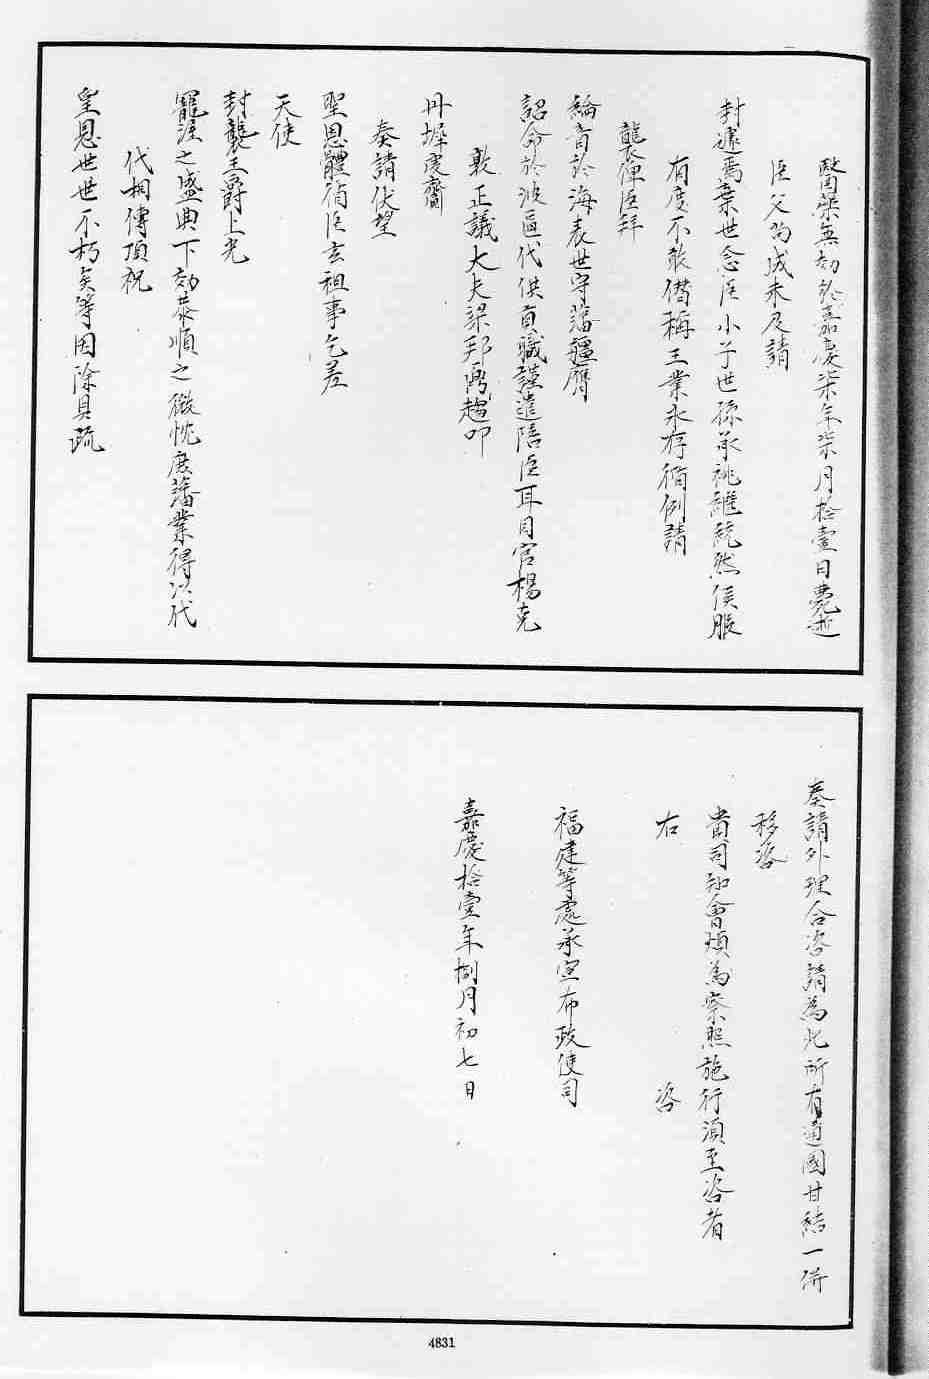 醫藥無効於嘉慶柒年柒月拾壹日薨逝
臣父為成未及請
封遽焉棄世念臣小子世孫承祧繼統然侯服
有度不敢僭稱王業永存循例請
襲俾臣拜
綸音於海表世守藩疆膺
詔命於波區代供貢職謹遣陪臣耳目官楊克
敦正議大夫梁邦弼趨叩
丹墀虔齎
奏請伏望
聖恩體循臣玄祖事乞差
天使
封襲王爵上光
寵渥之盛典下効恭順之微忱庶藩業得以代
代相傳頂祝
皇恩世世不朽矣等因除具疏
奏請外理合咨請為此所有通國甘結一併
移咨
貴司知會煩為察照施行須至咨者
右 咨
福建等處承宣布政使司
嘉慶拾壹年捌月初七日
4831